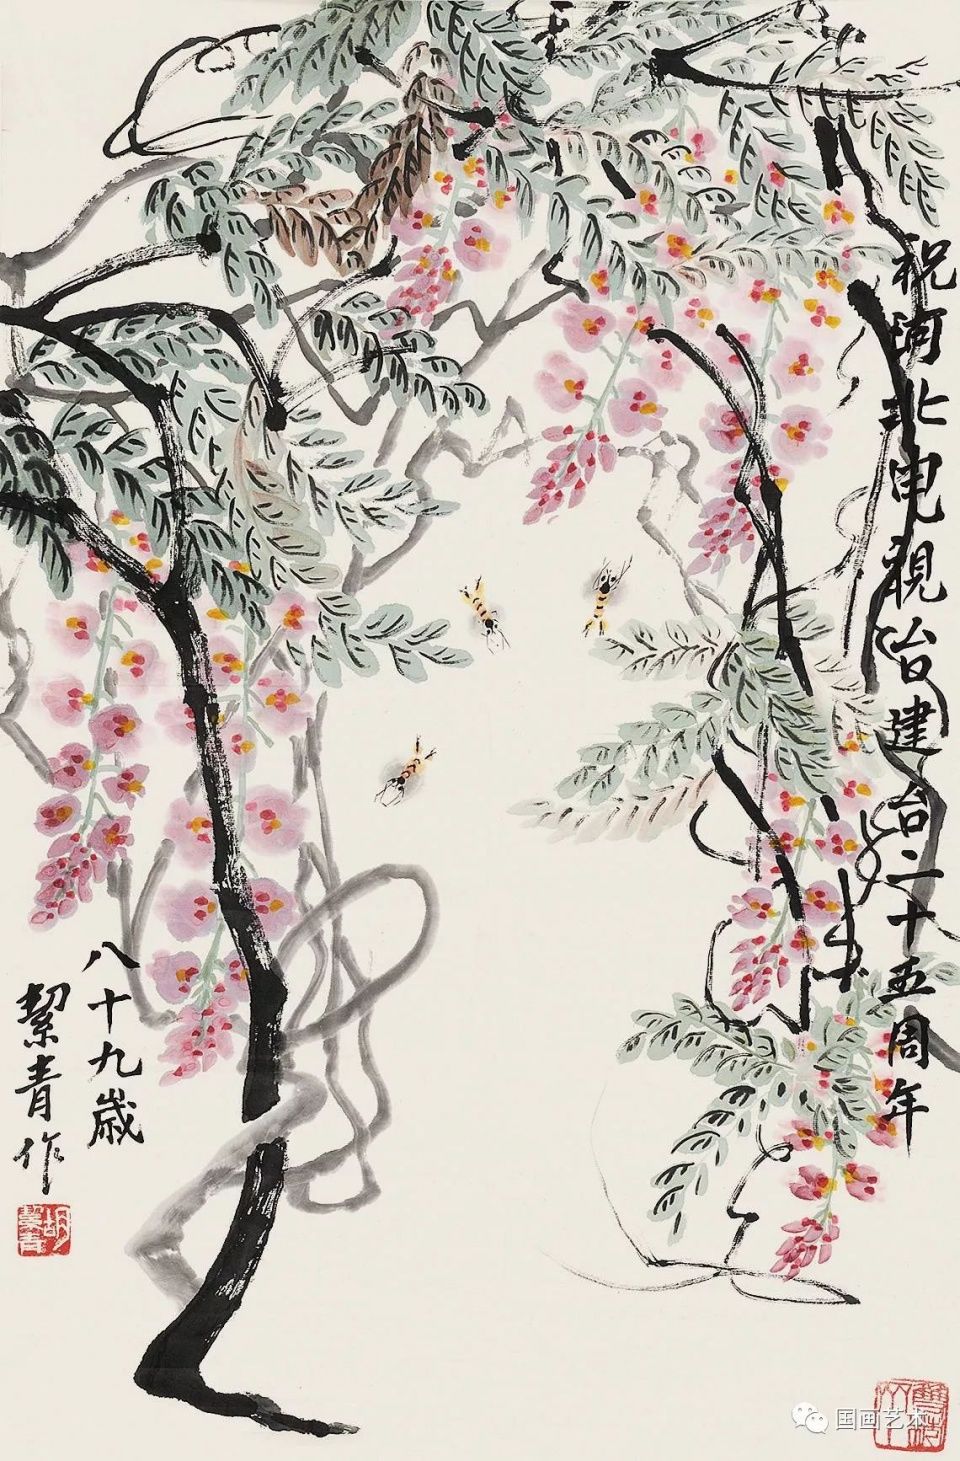 祝河北电视台建台二十五周年
八十九歲
絜青作
胡絜青
国画艺术